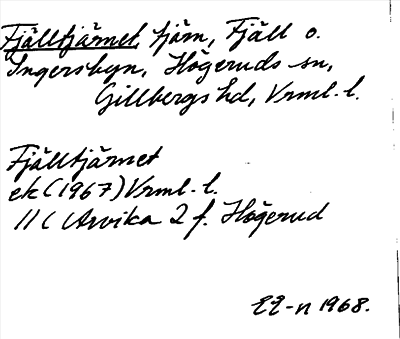 Fjälltjärnet, tjärn, Fjäll o.
Ingersbyn, Högeruds sn,
Gillbergs hd, Vrml. l.
Fjälltjärnet
ek (1967) Vrml. l.
11 C Arvika 2 f. Högerud
-n 1968.